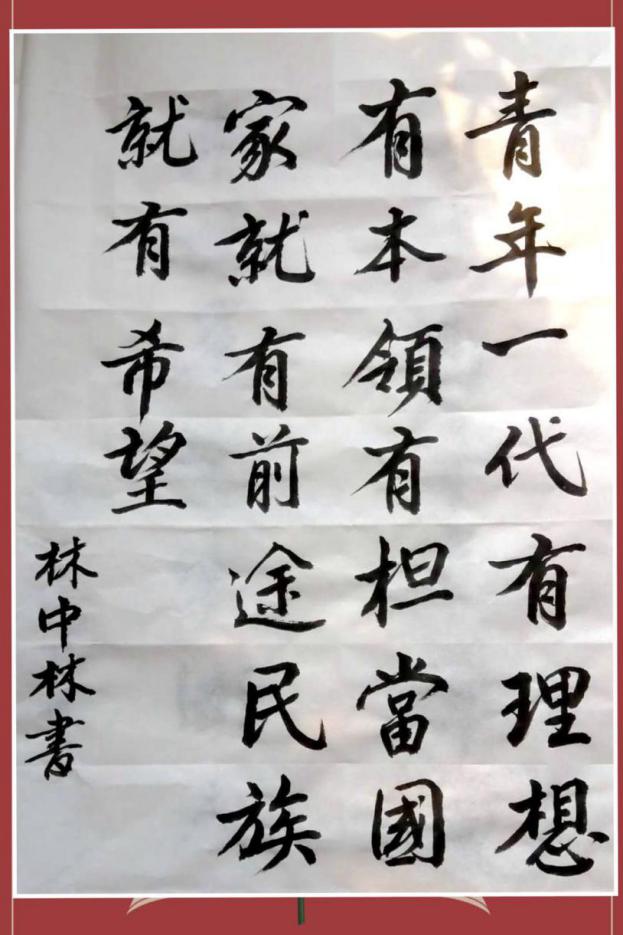 青年一代有理想
有本領有担當國
家就有前途民族
就有希望
林中林書